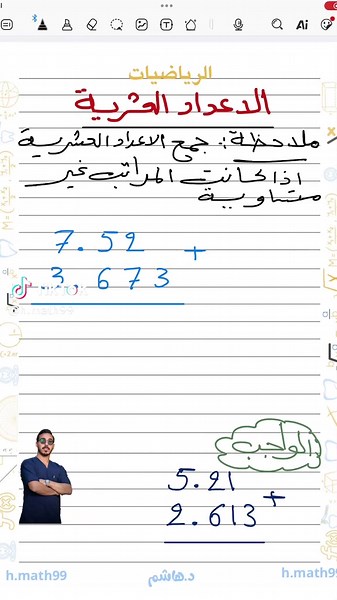 الرياضيات
الاعداد العشرية
ملاحظة: جمع الاعداد العشرية
اذا كانت المراتب غير
متساوية
7.52 +
3.673
الواجب
5.21 +
2.613
h.math99
د.هاشم
h.math99